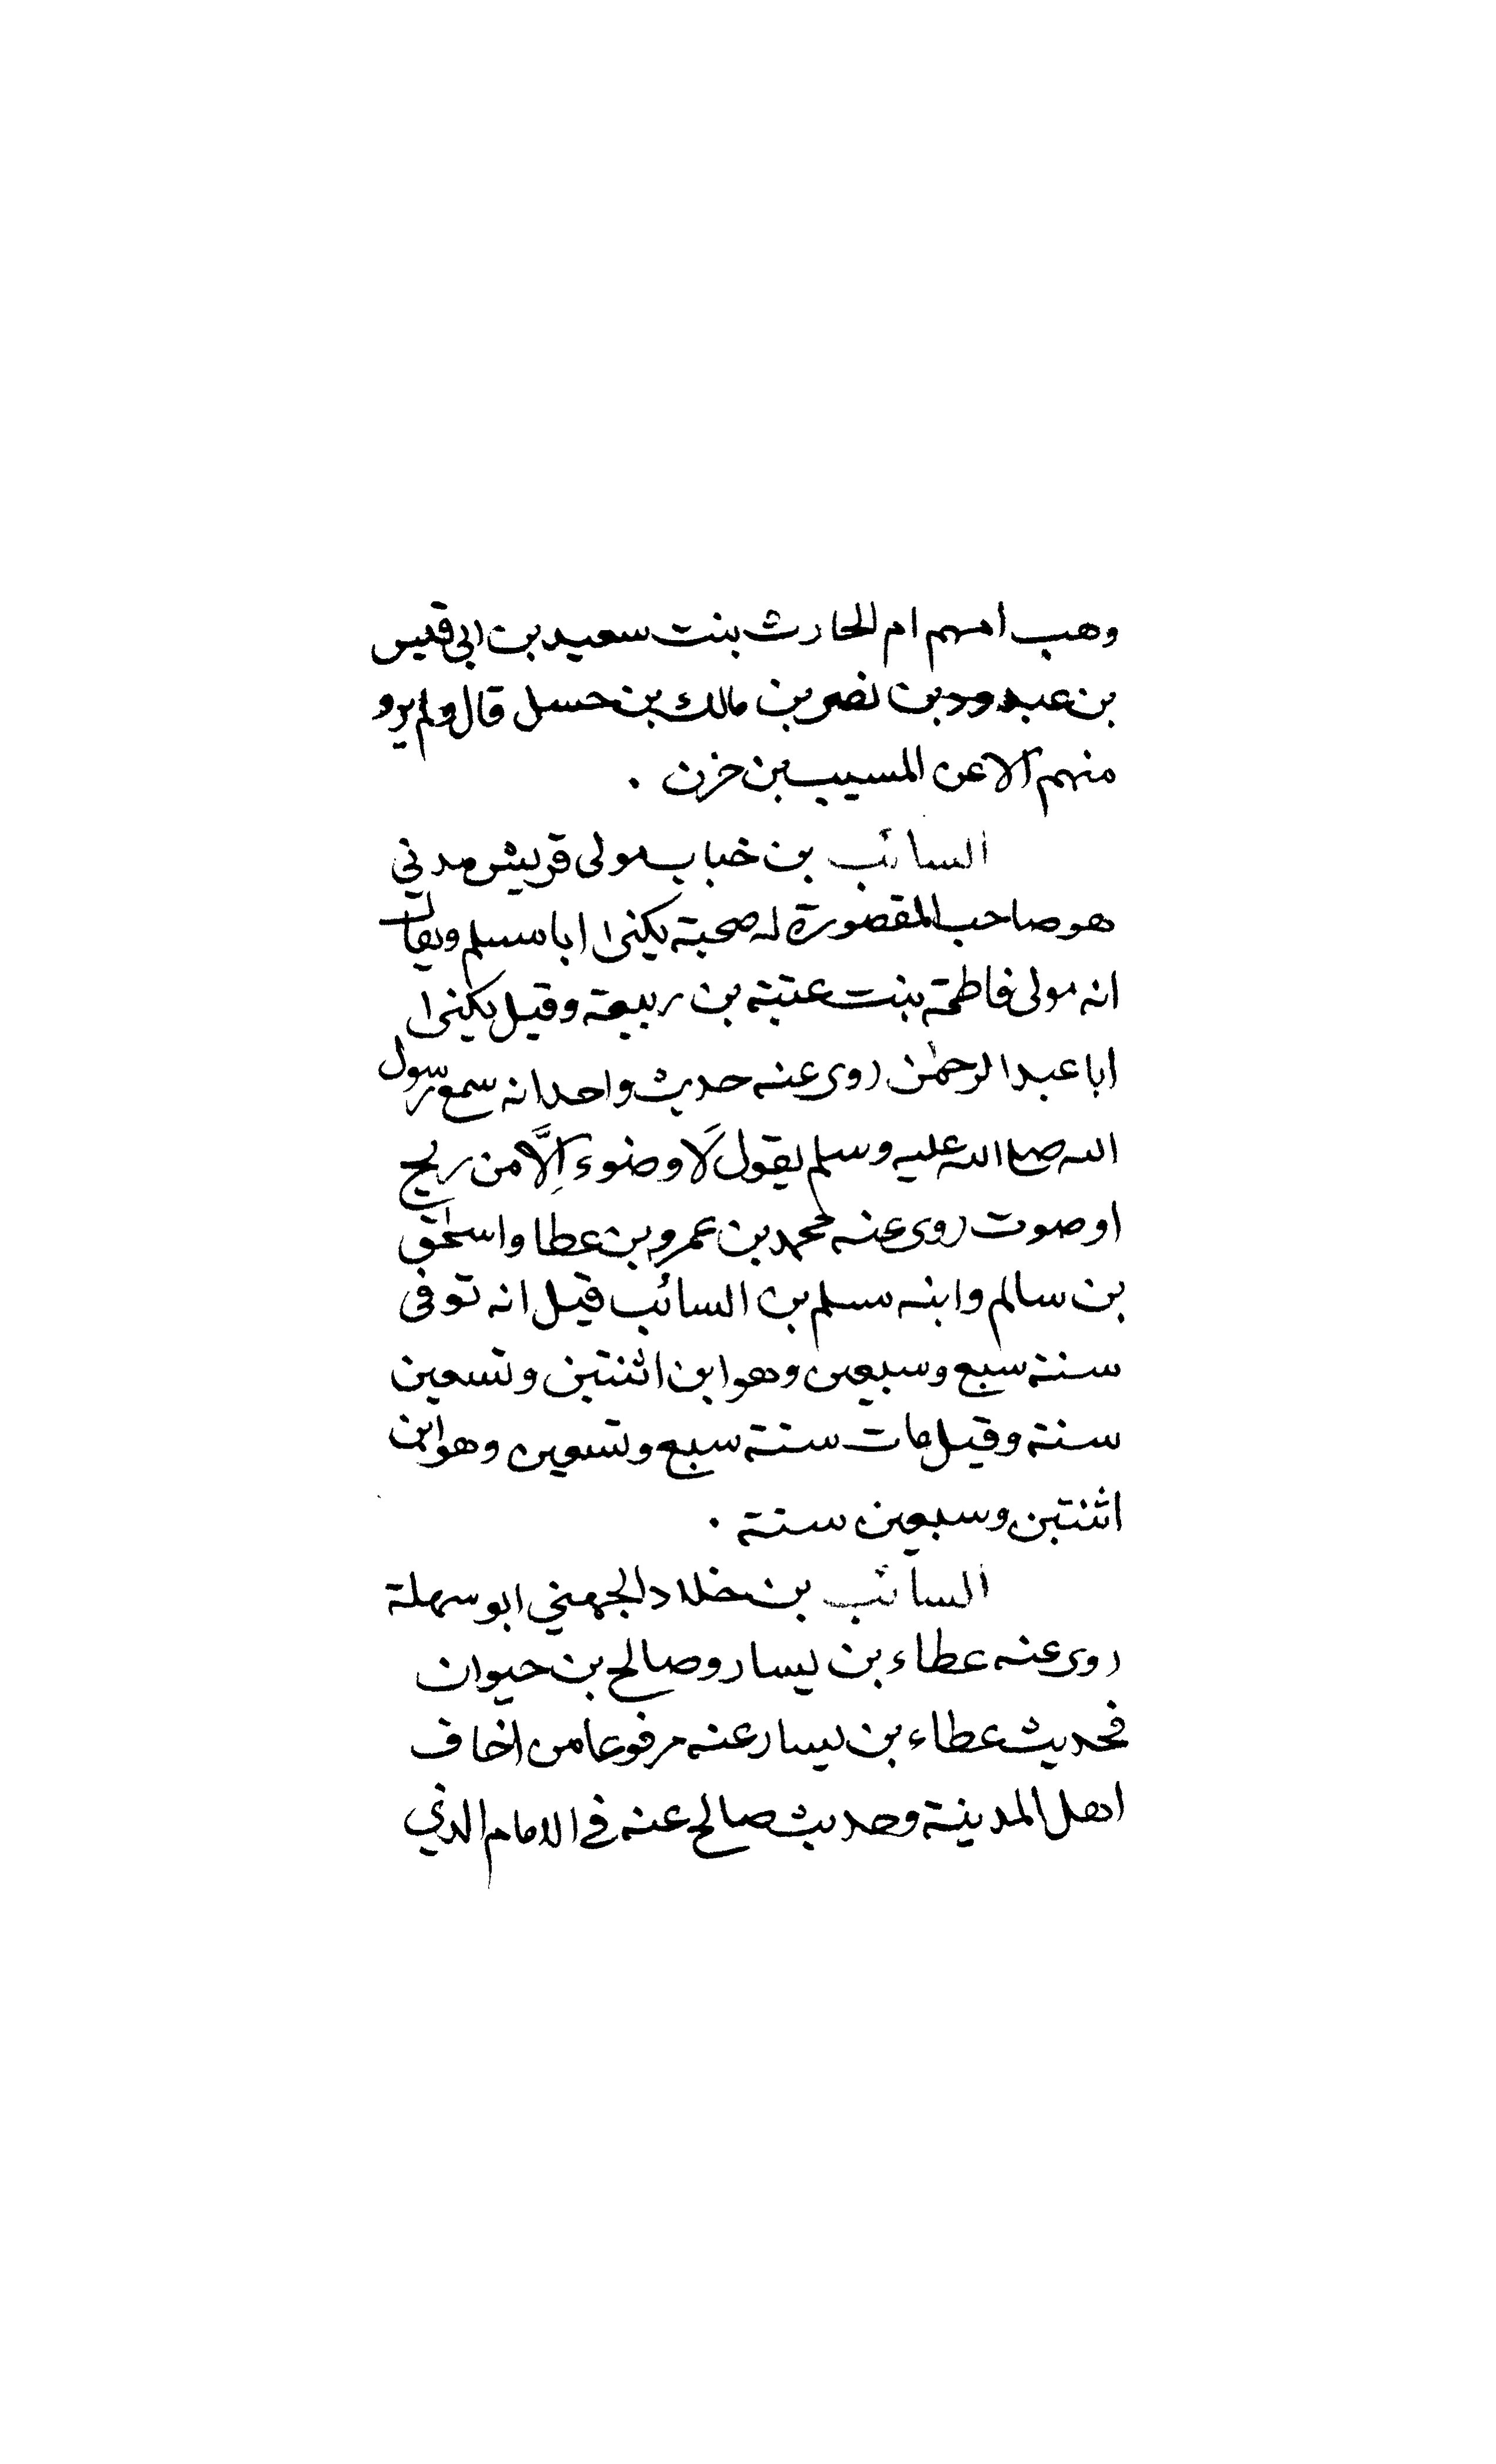 وهب امهم ام الحارث بنت سعيد بن ابي قيس
بن عبد ود بن نصر بن مالك بن حسل قال ولم يرو
منهم الا عن المسيب بن حزن .
السائب بن خباب مولى قريش مدني
هو صاحب المقصورة له صحبة يكنى ابا مسلم ويقال
انه مولى فاطمة بنت عتبة بن ربيعة وقيل يكنى
ابا عبد الرحمٰن روى عنه حديث واحد انه سمع رسول
الله صلى الله عليه وسلم يقول لَا وضوء اِلَّا من ريح
او صوت روى عنه محمد بن عمرو بن عطا واسحٰق
بن سالم وابنه مسلم بن السائب قيل انه توفى
سنة سبع وسبعين وهو ابن اثنتين وتسعين
سنة وقيل مات سنة سبع وتسعين وهو ابن
اثنتين وسبعين سنة .
السائب بن خلاد الجهني ابو سهلة
روى عنه عطاء بن يسار وصالح بن حيوان
فحديث عطاء بن يسار عنه مرفوعا من اخاف
اهل المدينة وحديث صالح عنه في الامام الذي